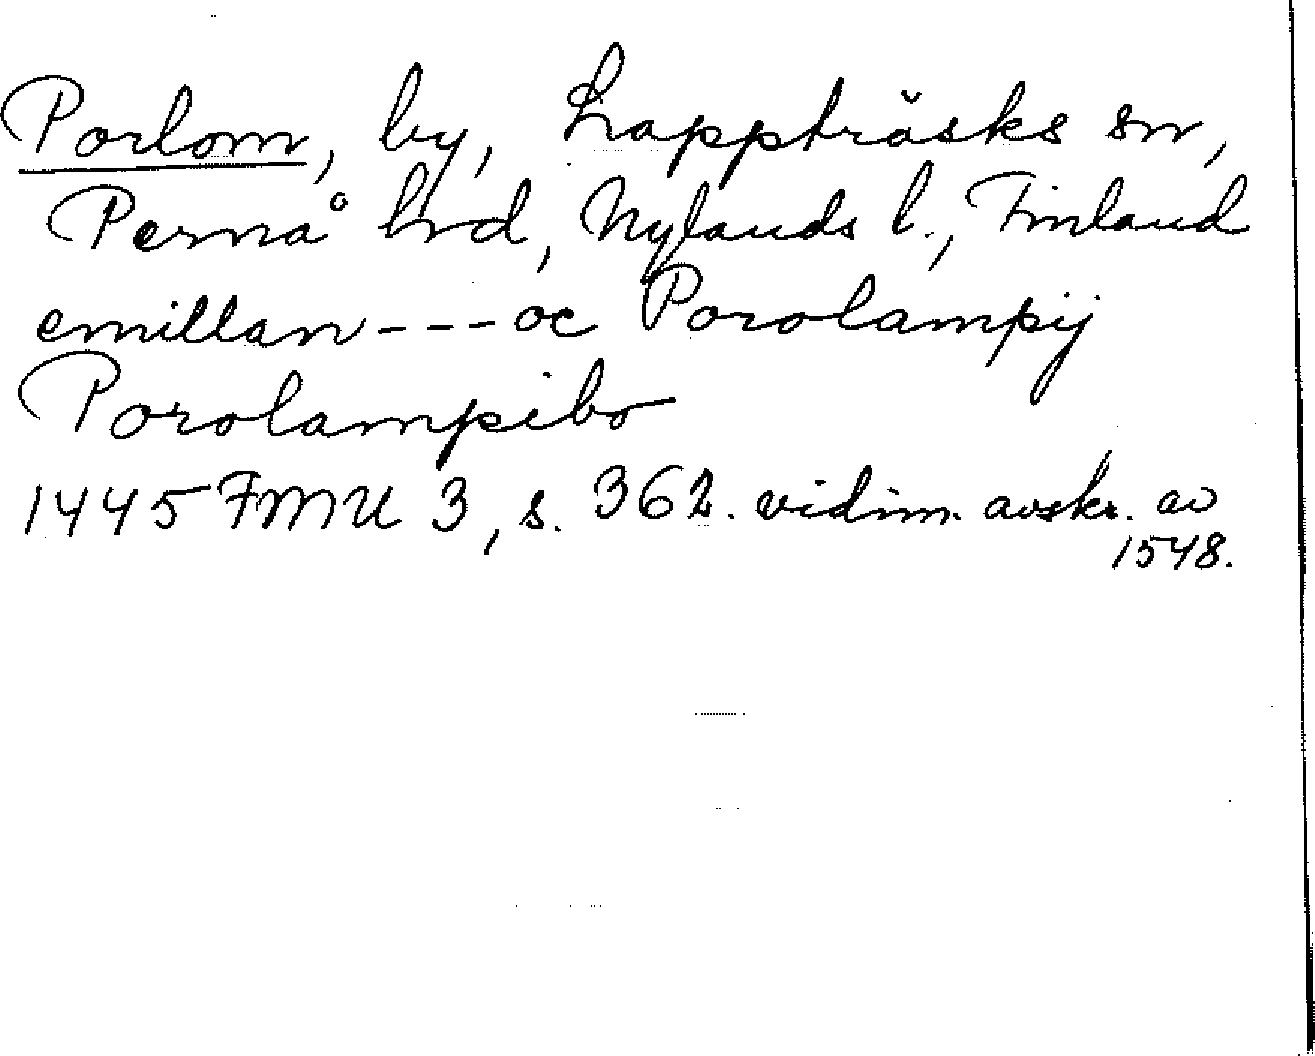 Porlom, by, Lappträsks sn,
Pernå hrd, Nylands l., Finland
emillan --- oc Porolampij
Porolampibo
1445 FMU 3, s. 362. vidim. avskr. av
1548.